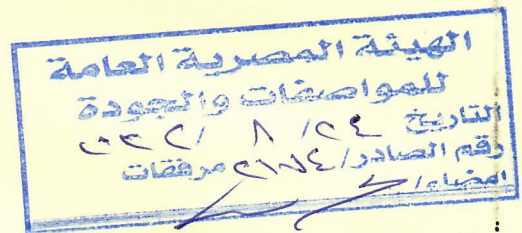 الهيئة المصرية العامة
للمواصفات والجودة
التاريخ ٢٤/ ٨ /٢٠٢٢
رقم الصادر/ مرفقات
امضاء/